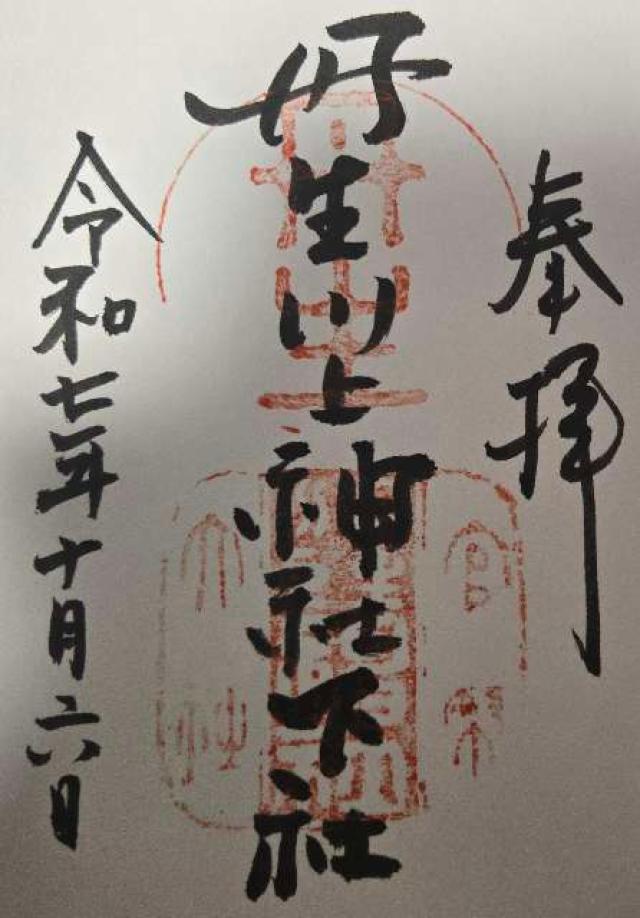 奉拝
丹生川上神社下社
官幣
大社
令和七年十月六日